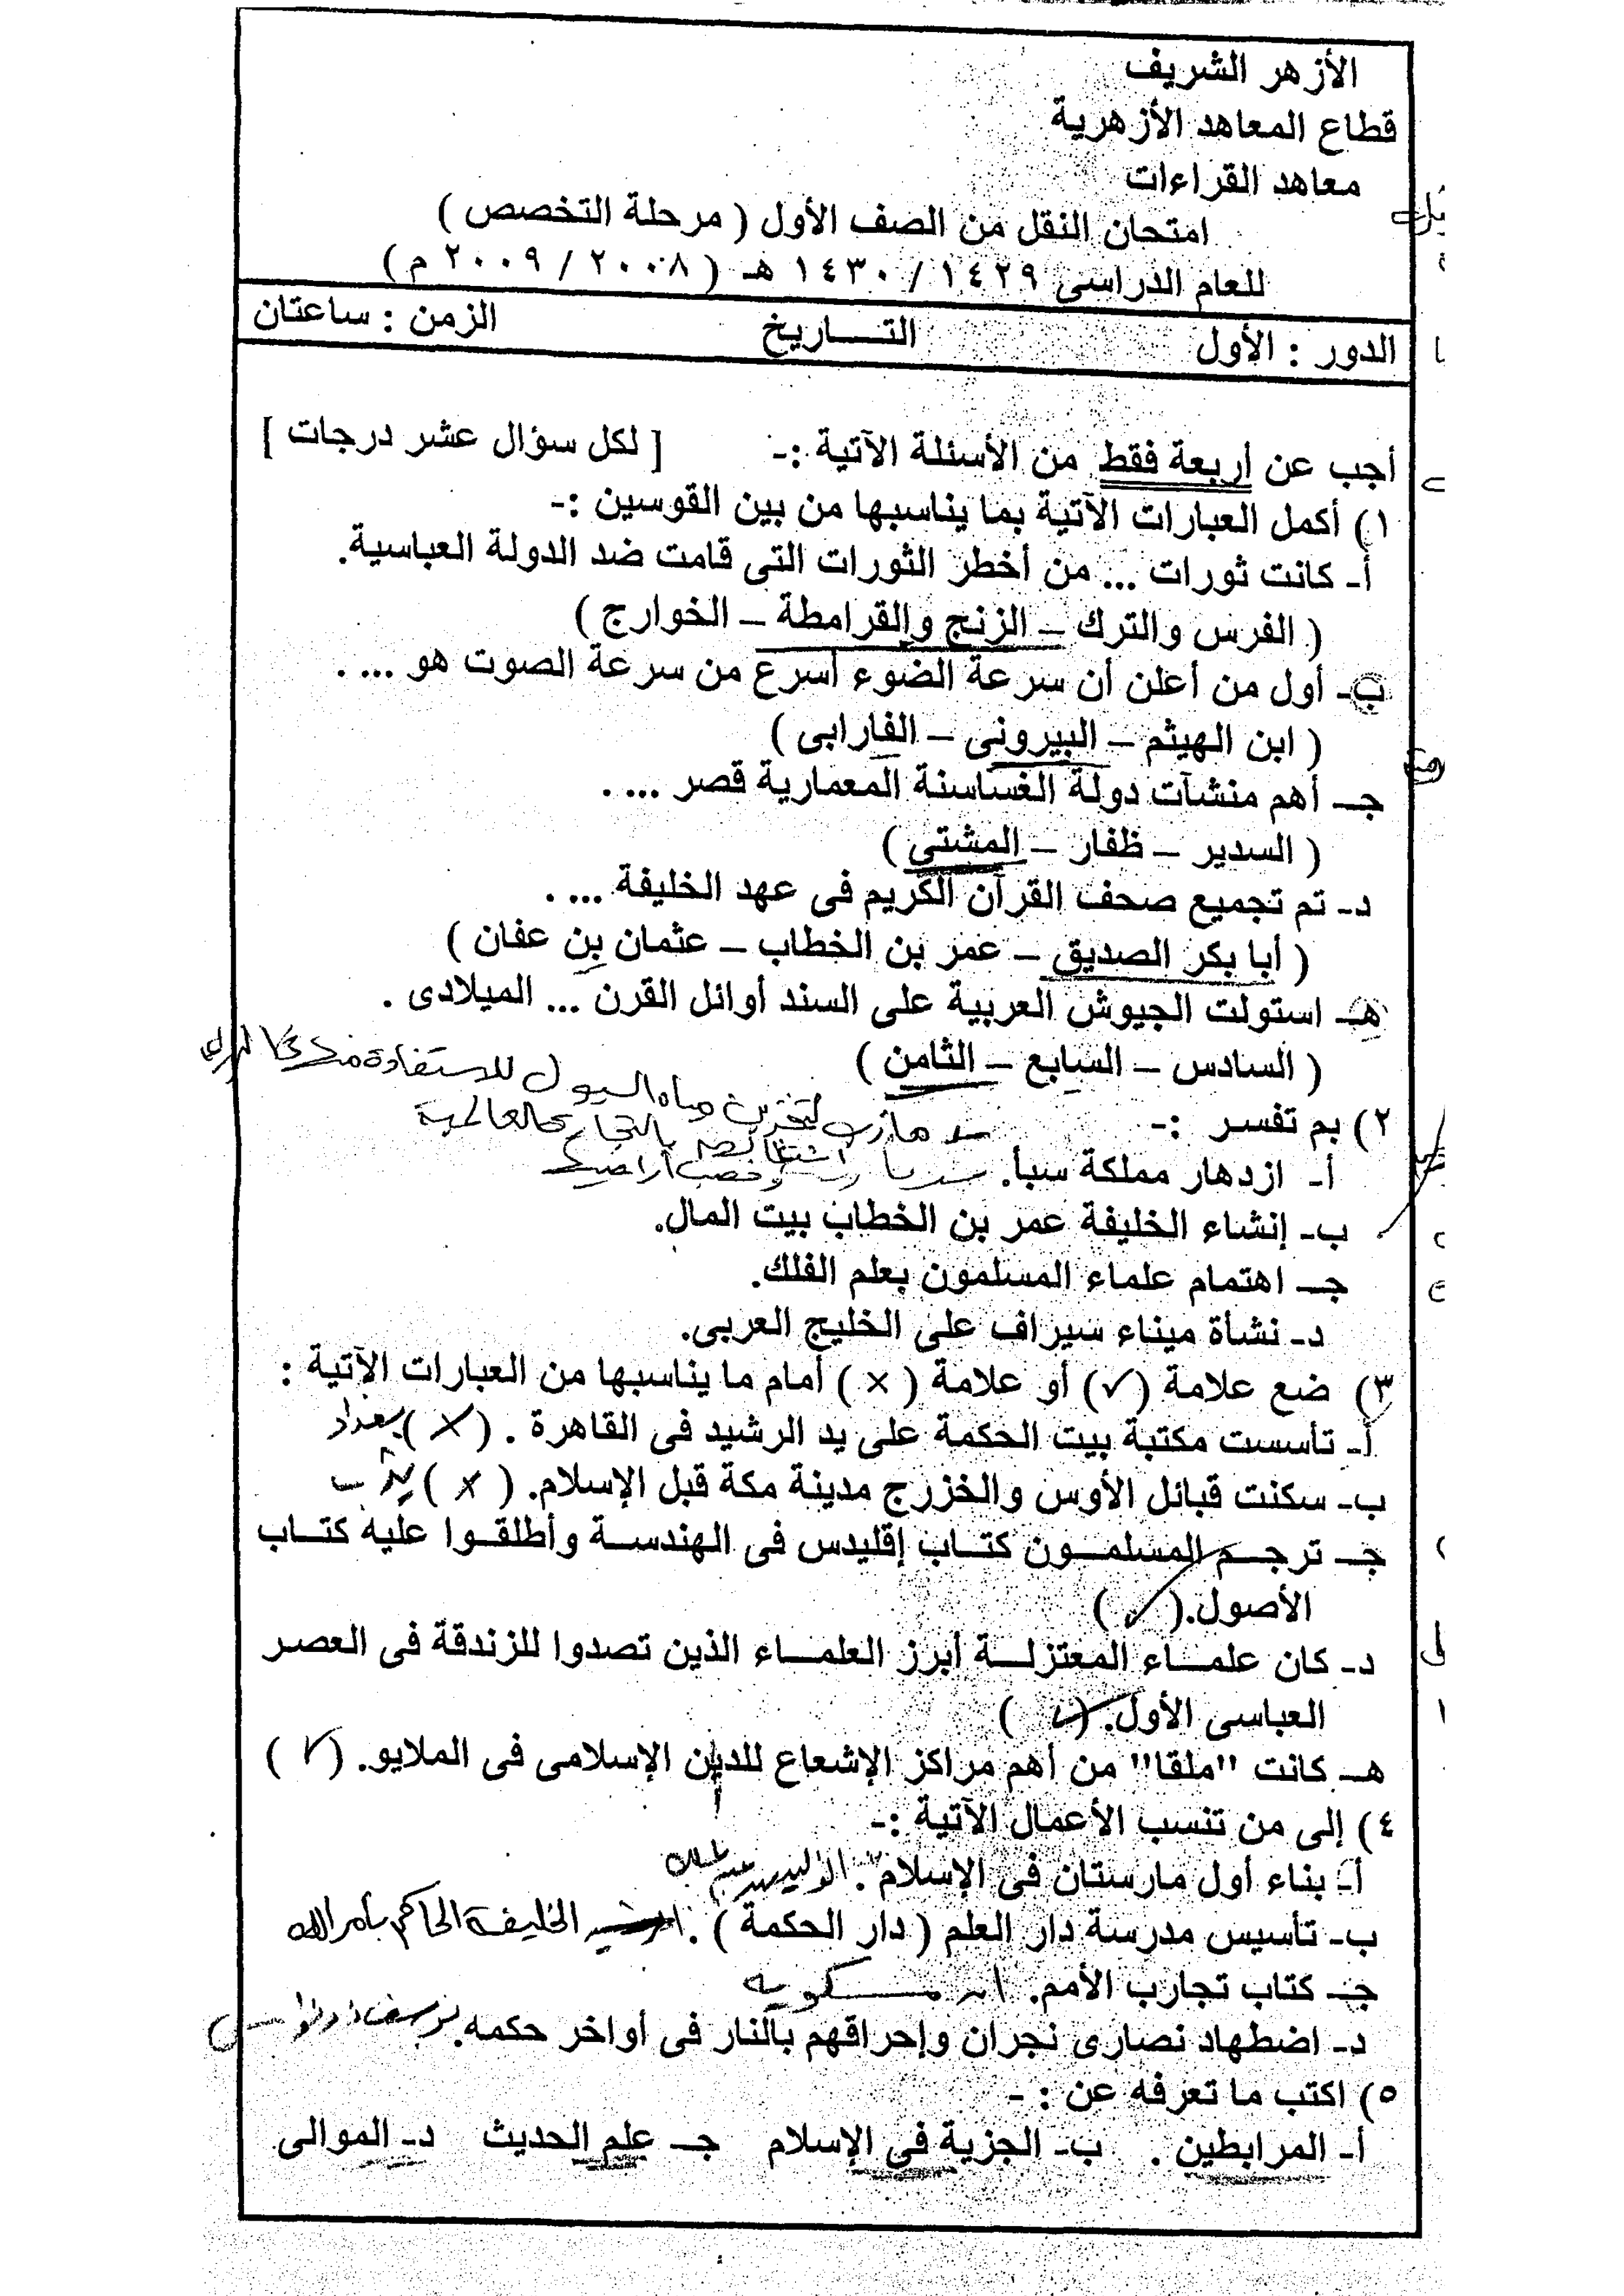 الأزهر الشريف
قطاع المعاهد الأزهرية
معاهد القراءات
امتحان النقل من الصف الأول ( مرحلة التخصص )
للعام الدراسى ١٤٢٩ / ١٤٣٠ هـ ( ٢٠٠٨ / ٢٠٠٩ م )
الدور : الأول التــــاريخ الزمن : ساعتان
أجب عن أربعة فقط من الأسئلة الآتية :- [ لكل سؤال عشر درجات ]
١) أكمل العبارات الآتية بما يناسبها من بين القوسين :-
أ- كانت ثورات ... من أخطر الثورات التى قامت ضد الدولة العباسية.
( الفرس والترك – الزنج والقرامطة – الخوارج )
ب- أول من أعلن أن سرعة الضوء أسرع من سرعة الصوت هو ... .
( ابن الهيثم – البيرونى – الفارابى )
جـ- أهم منشآت دولة الغساسنة المعمارية قصر ... .
( السدير – ظفار – المشتى )
د- تم تجميع صحف القرآن الكريم فى عهد الخليفة ... .
( أبا بكر الصديق – عمر بن الخطاب – عثمان بن عفان )
هـ- استولت الجيوش العربية على السند أوائل القرن ... الميلادى .
( السادس – السابع – الثامن )
مأرب لتخزين مياه السيول للاستفادة منها
٢) بم تفسر :- اشتغالهم بالتجارة العالمية
أ- ازدهار مملكة سبأ. وخصب أراضيها
ب- إنشاء الخليفة عمر بن الخطاب بيت المال.
جـ- اهتمام علماء المسلمون بعلم الفلك.
د- نشأة ميناء سيراف على الخليج العربى.
٣) ضع علامة (✓) أو علامة ( × ) أمام ما يناسبها من العبارات الآتية :
أ- تأسست مكتبة بيت الحكمة على يد الرشيد فى القاهرة . ( × ) بغداد
ب- سكنت قبائل الأوس والخزرج مدينة مكة قبل الإسلام. ( × ) يثرب
جـ- ترجــم المسلمــون كتــاب إقليدس فى الهندســة وأطلقــوا عليه كتــاب
الأصول.( ✓ )
د- كان علمــاء المعتزلــة أبرز العلمــاء الذين تصدوا للزندقة فى العصر
العباسى الأول. ( ✓ )
هـ- كانت "ملقا" من أهم مراكز الإشعاع للدين الإسلامى فى الملايو. ( ✓ )
٤) إلى من تنسب الأعمال الآتية :-
أ- بناء أول مارستان فى الإسلام . الوليد بن عبد الملك
ب- تأسيس مدرسة دار العلم ( دار الحكمة ) . الخليفة الحاكم بأمر الله
جـ- كتاب تجارب الأمم. ابن مسكويه
د- اضطهاد نصارى نجران وإحراقهم بالنار فى أواخر حكمه. يوسف ذو نواس
٥) اكتب ما تعرفه عن : -
أ- المرابطين . ب- الجزية فى الإسلام جـ- علم الحديث د- الموالى